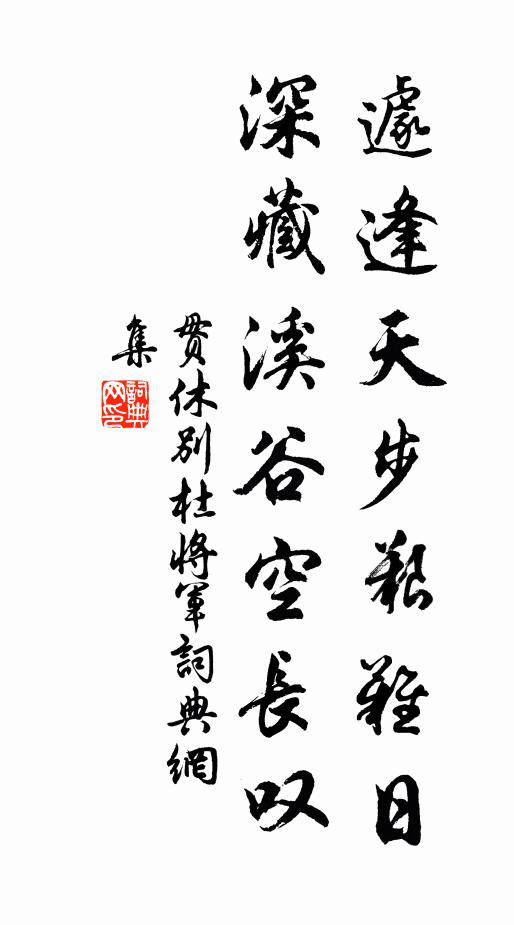 遽逢天步艱難日
深藏溪谷空長叹
貫休別杜將軍詞典網
集
詞典
网印